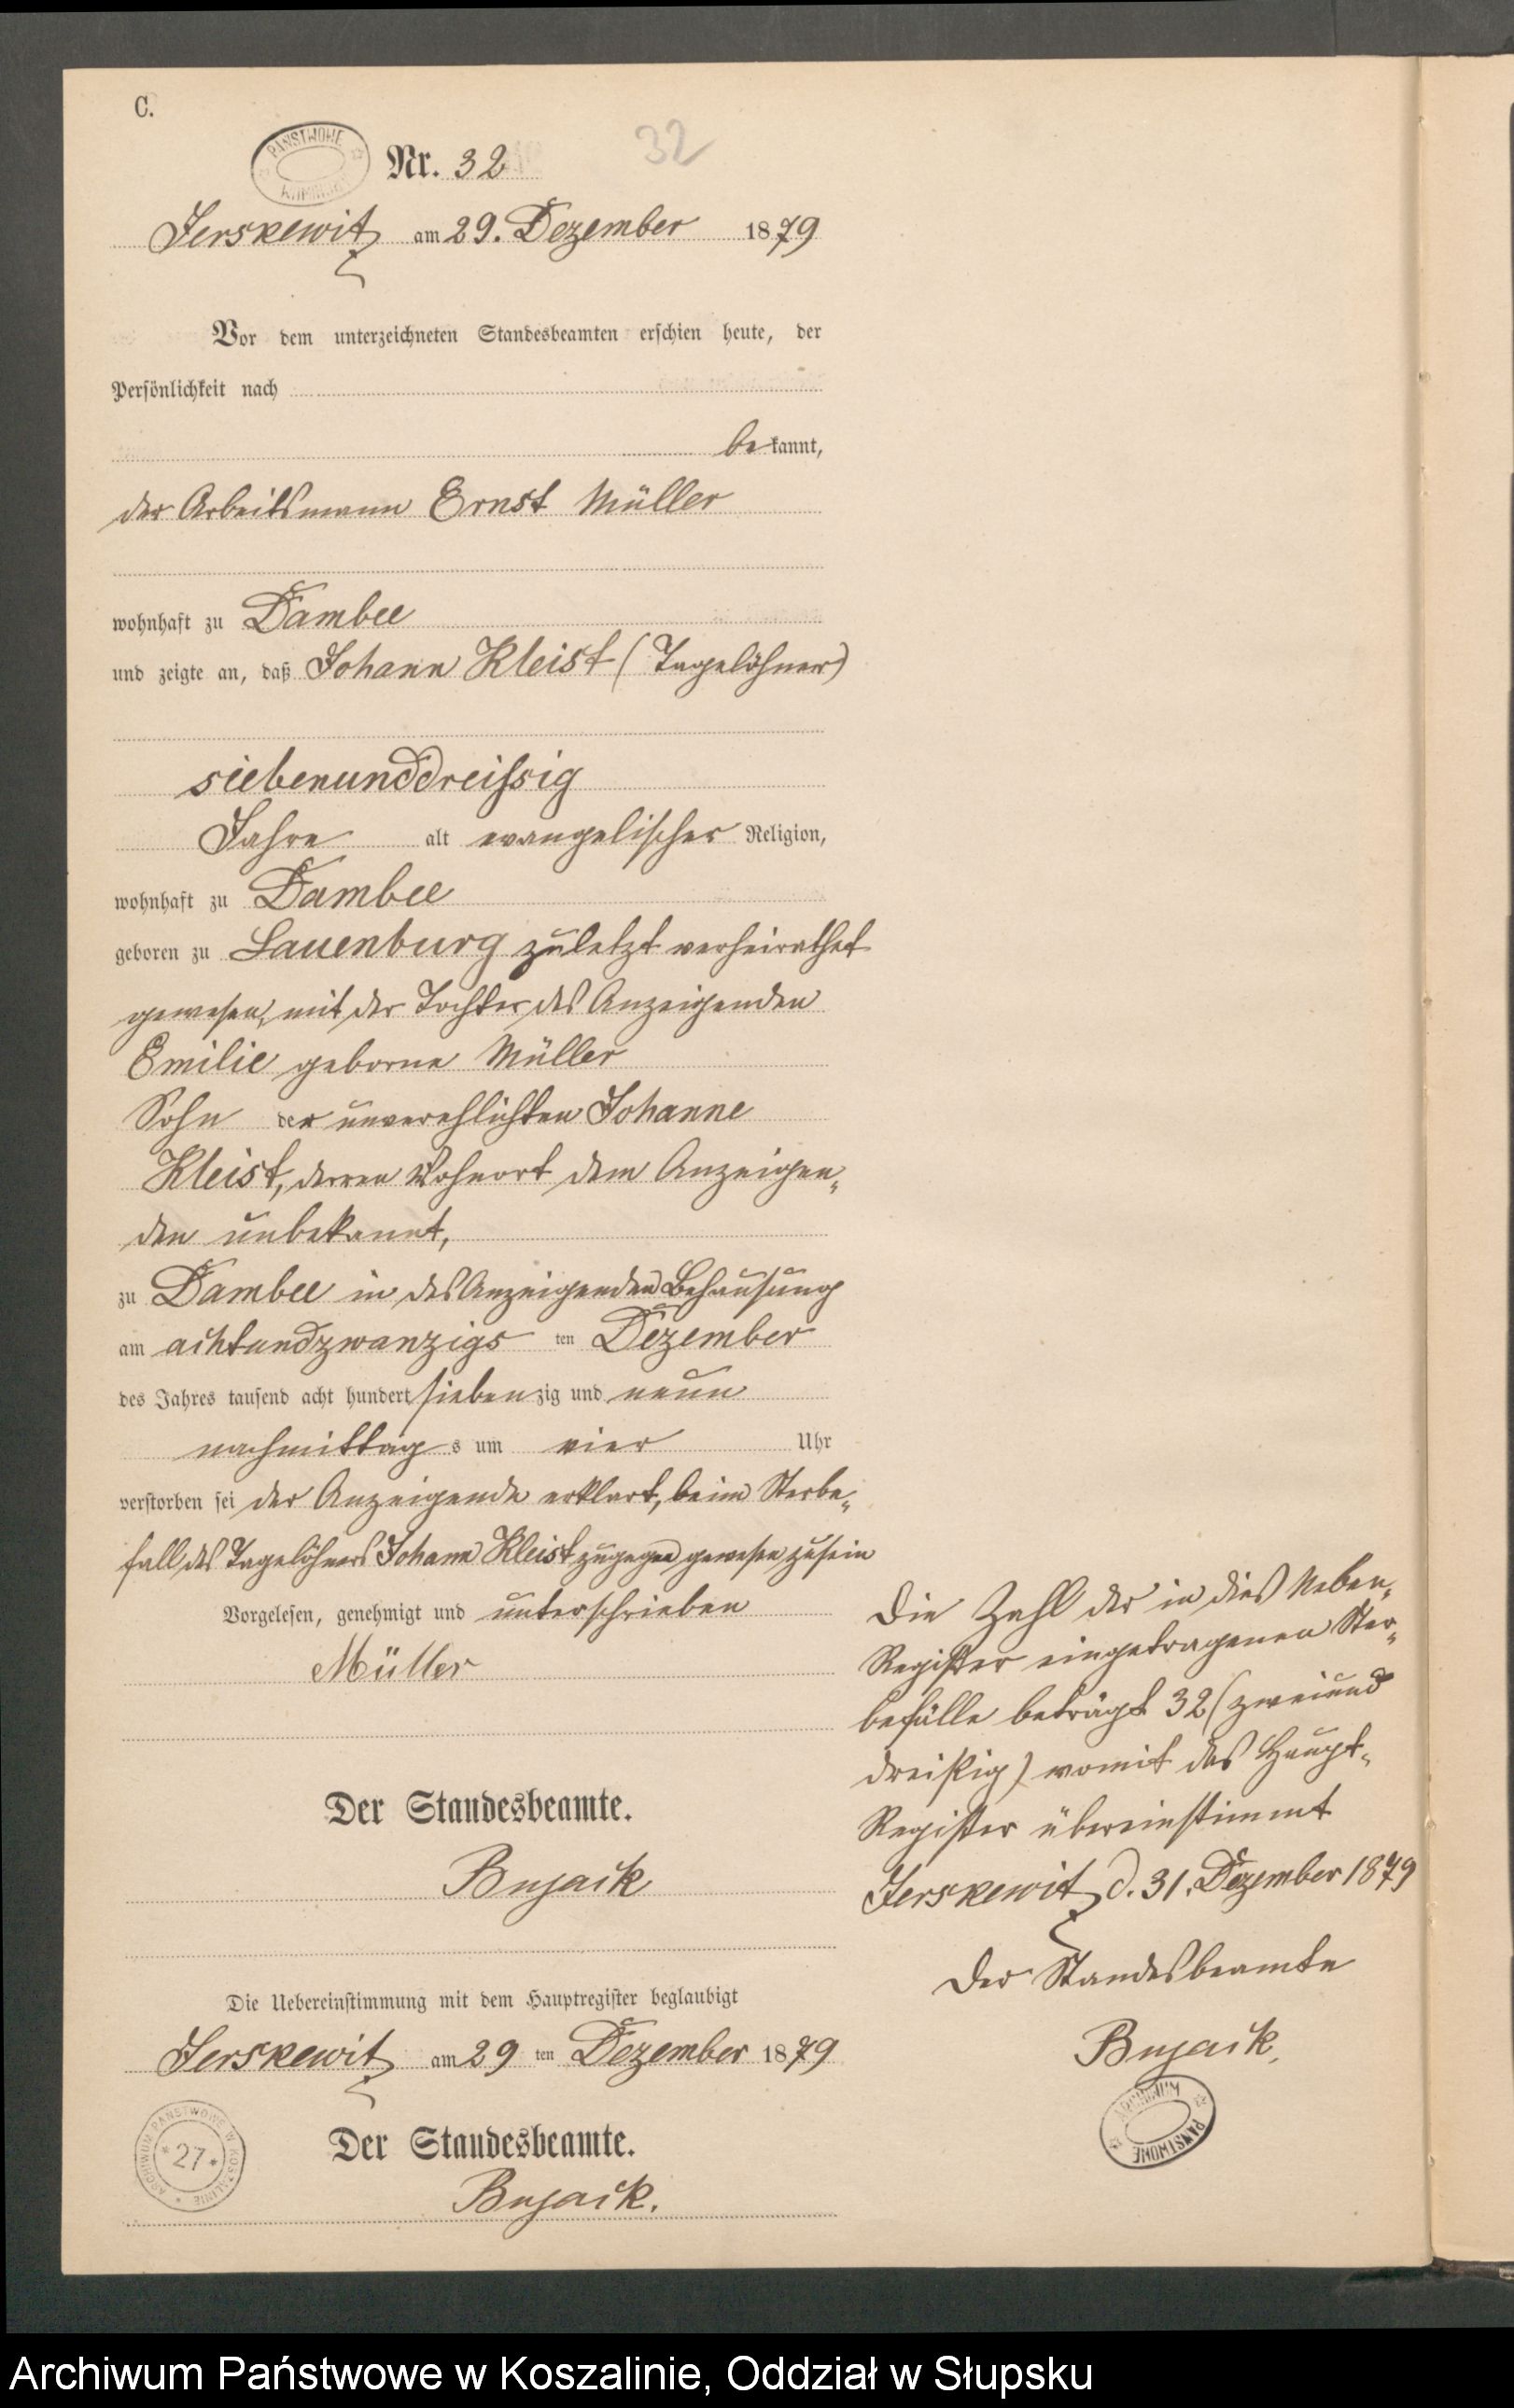 C.
PAŃSTWOWE
Nr. 32
32
Jerskewitz am 29. Dezember 1879
Vor dem unterzeichneten Standesbeamten erschien heute, der
Persönlichkeit nach
be kannt,
der Arbeitsmann Ernst Müller
wohnhaft zu Dambee
und zeigte an, daß Johann Kleist (Tagelöhner)
siebenunddreissig
Jahre alt evangelischer Religion,
wohnhaft zu Dambee
geboren zu Lauenburg zuletzt verheirathet
gewesen, mit der Tochter des Anzeigenden
Emilie geborne Müller
Sohn der unverehlichten Johanne
Kleist, deren Wohnort dem Anzeigen„
den unbekannt,
zu Dambee in des Anzeigenden Behausung
am achtundzwanzigs ten Dezember
des Jahres tausend acht hundert siebenzig und neun
nachmittag s um vier Uhr
verstorben sei der Anzeigende erklart, beim Sterbe„
fall des Tagelöhners Johann Kleist zugegen gewesen zu sein
Vorgelesen, genehmigt und unterschrieben
Müller
Der Standesbeamte.
Bujack
Die Uebereinstimmung mit dem Hauptregister beglaubigt
Jerskewitz am 29 ten Dezember 1879
Der Standesbeamte.
Bujack.
ARCHIWUM PAŃSTWOWE W KOSZALINIE
*27*
Die Zahl der in dies Neben„
Register eingetragenen Ster„
befälle beträgt 32 (zweiund
dreißig) womit das Haupt„
Register übereinstimmt
Jerskewitz d. 31. Dezember 1879
Der Standesbeamte
Bujack.
ARCHIWUM
PAŃSTWOWE
Archiwum Państwowe w Koszalinie, Oddział w Słupsku